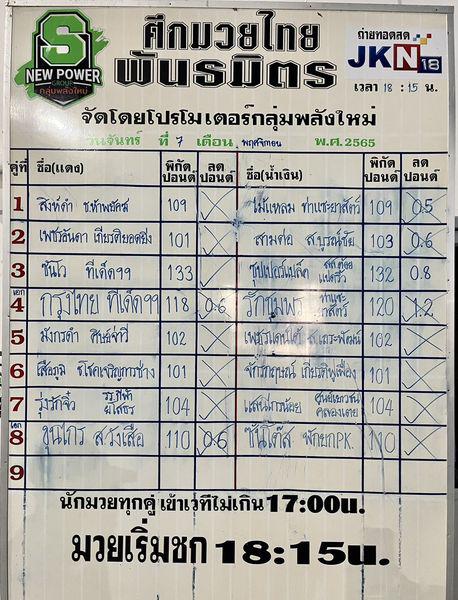 S
NEW POWER
GROUP
กลุ่มพลังใหม่
ศึกมวยไทย
พันธมิตร
ถ่ายทอดสด
JKN18
เวลา 18 : 15 น.
จัดโดยโปรโมเตอร์กลุ่มพลังใหม่
วันจันทร์ ที่ 7 เดือน พฤศจิกายน พ.ศ.2565
คู่ที่ ชื่อ(แดง) พิกัด ปอนด์ ลด ปอนด์ ชื่อ(น้ำเงิน) พิกัด ปอนด์ ลด ปอนด์
1 สิงห์ดำ 109 ไม้แหลม ท่าแซะยาสัตว์ 109 0.5
2 เพชรลันดา เกียรติยอดยิ่ง 101 สามต่อ ส.บูรณ์ชัย 103 0.6
3 ชันโว ทีเด็ด99 133 ซุปเปอร์แบล็ค 132 0.8
เอก
4 กรุงไทย ทีเด็ด99 118 0.6 รักชุมพร ท่าแซะยาสัตว์ 120 1.2
5 มังกรดำ 102 102
6 เสือภูมิ ช.โชคเจริญการช่าง 101 จักรกฤษณ์ เกียรติพูเฟื่อง 101
7 รุ่งรักจิ๋ว รร.กีฬา ยโสธร 104 เสน่ห์เด็กน้อย ศูนย์เยาวชน คลองเตย 104
เอก
8 ขุนไกร ส.วังเสือ 110 0.6 ซันโต๊ส พักยกPK. 110
9
นักมวยทุกคู่ เข้าเวทีไม่เกิน 17:00น.
มวยเริ่มชก 18:15น.